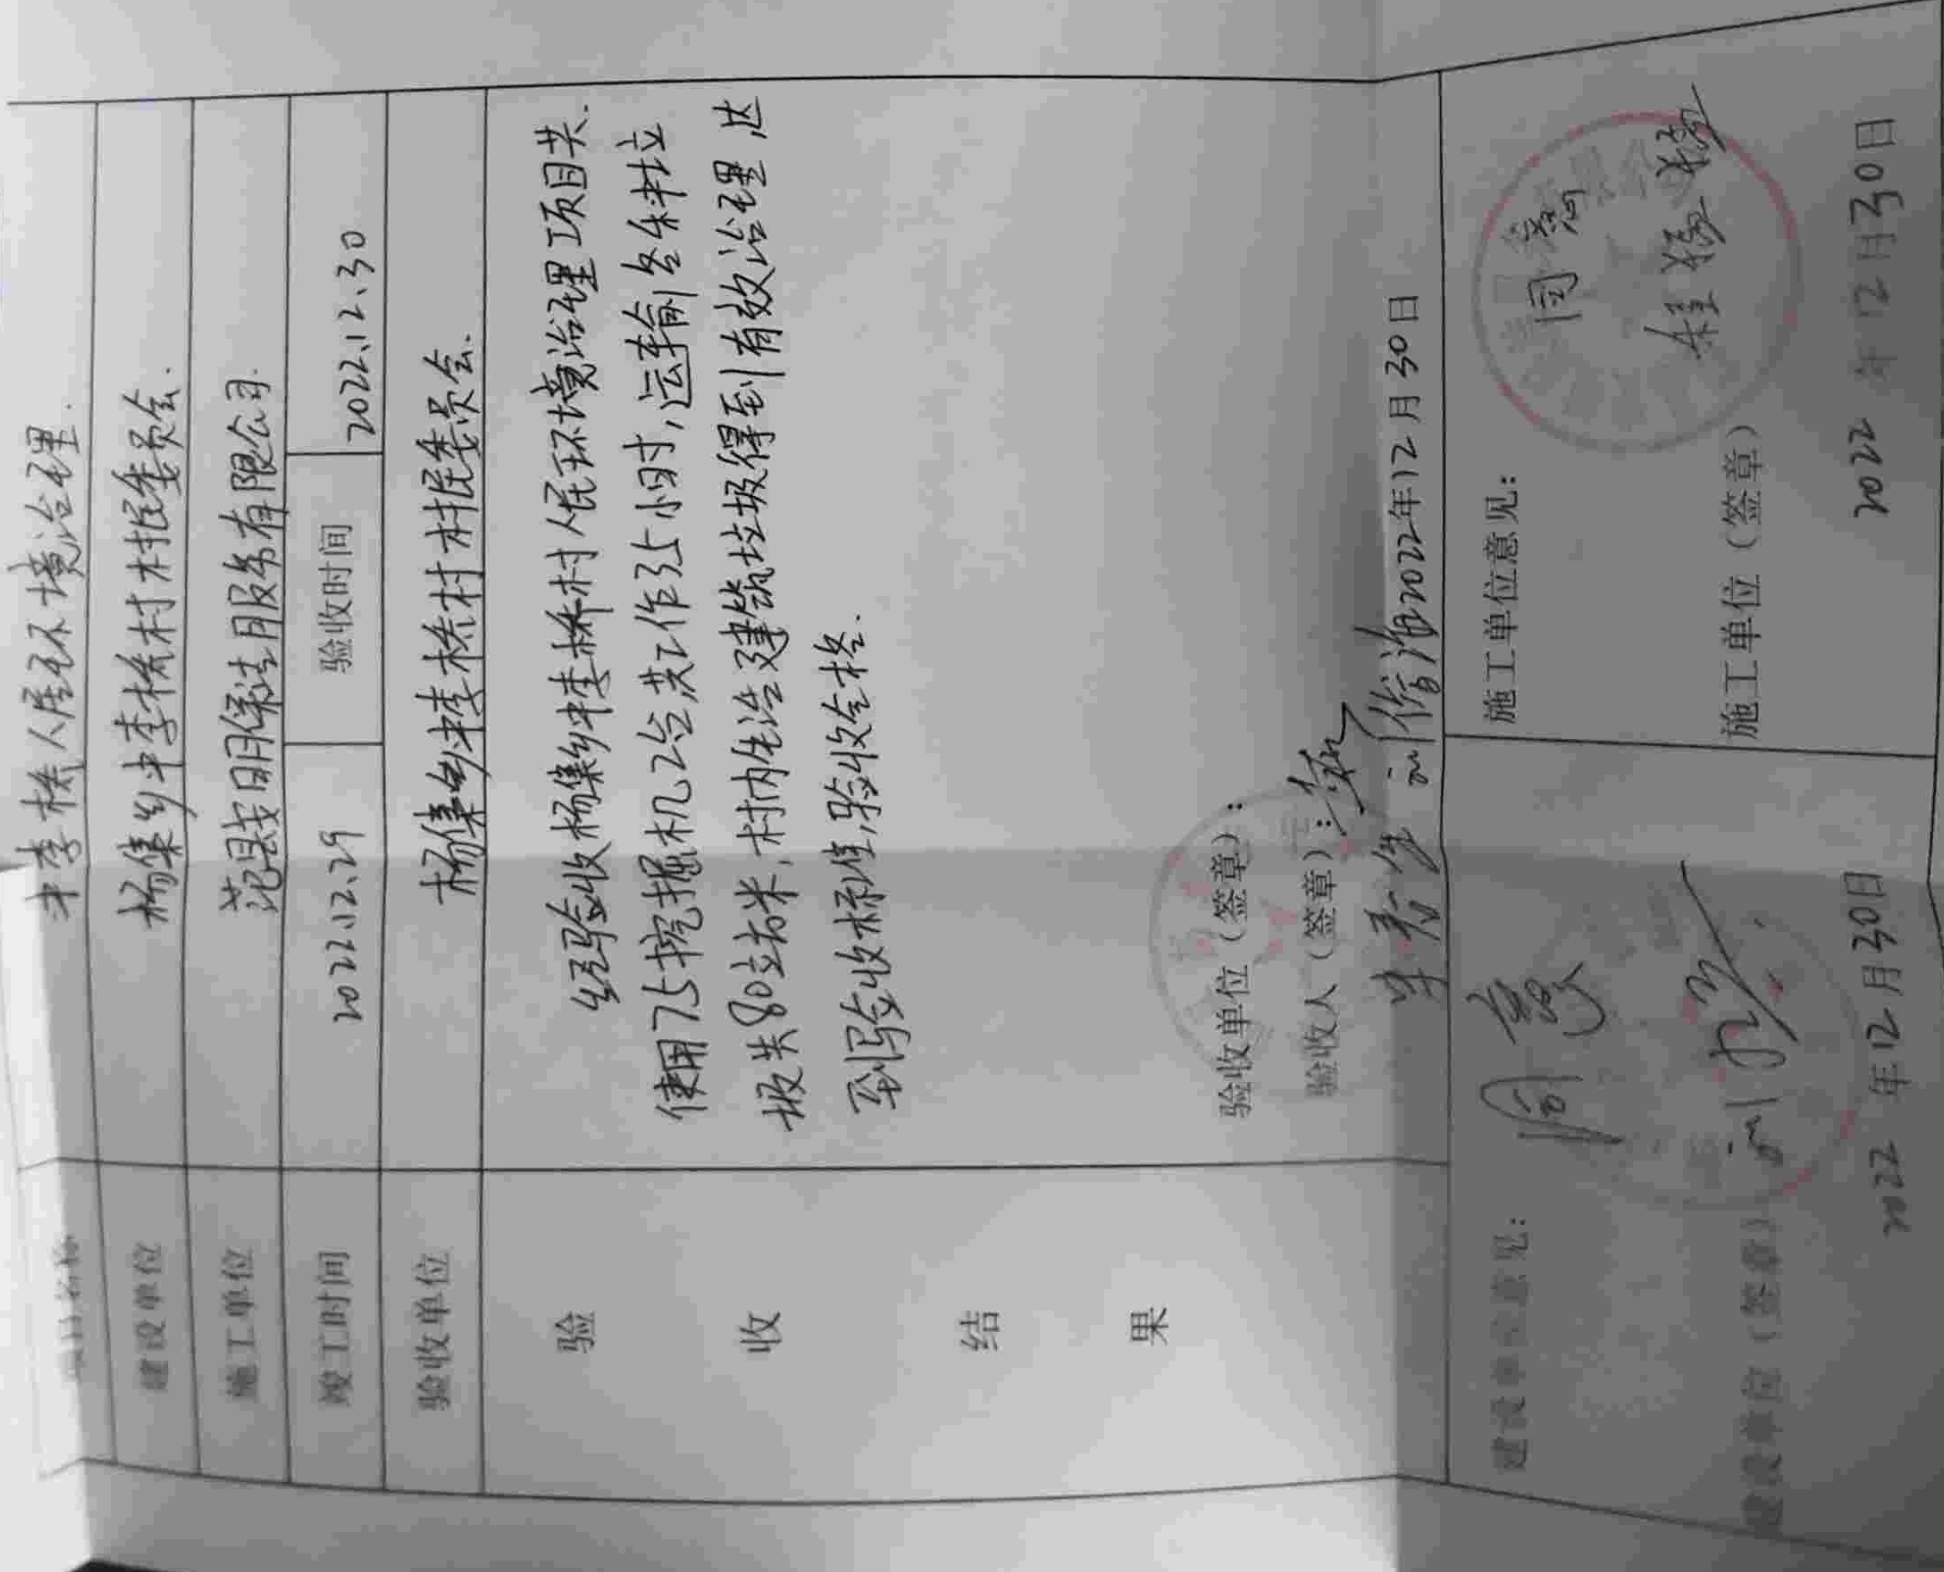 项目名称 中李桥人居环境治理.
建设单位 杨集乡中李桥村村民委员会.
施工单位 范县 明保洁服务有限公司.
竣工时间 2022.12.29 验收时间 2022.12.30
验收单位 杨集乡中李桥村村民委员会.
验收结果
经验收杨集乡中李桥村人居环境治理项目共.
使用75挖掘机2台共工作35小时,运输各种垃
圾共80立方米,村内生活建筑垃圾得到有效治理,达
到验收标准,验收合格.
验收单位(签章):
验收人(签章):
2022年12月30日
建设单位意见:
同意
建设单位(签章)
2022年12月30日
施工单位意见:
同意
施工单位(签章)
2022年12月30日